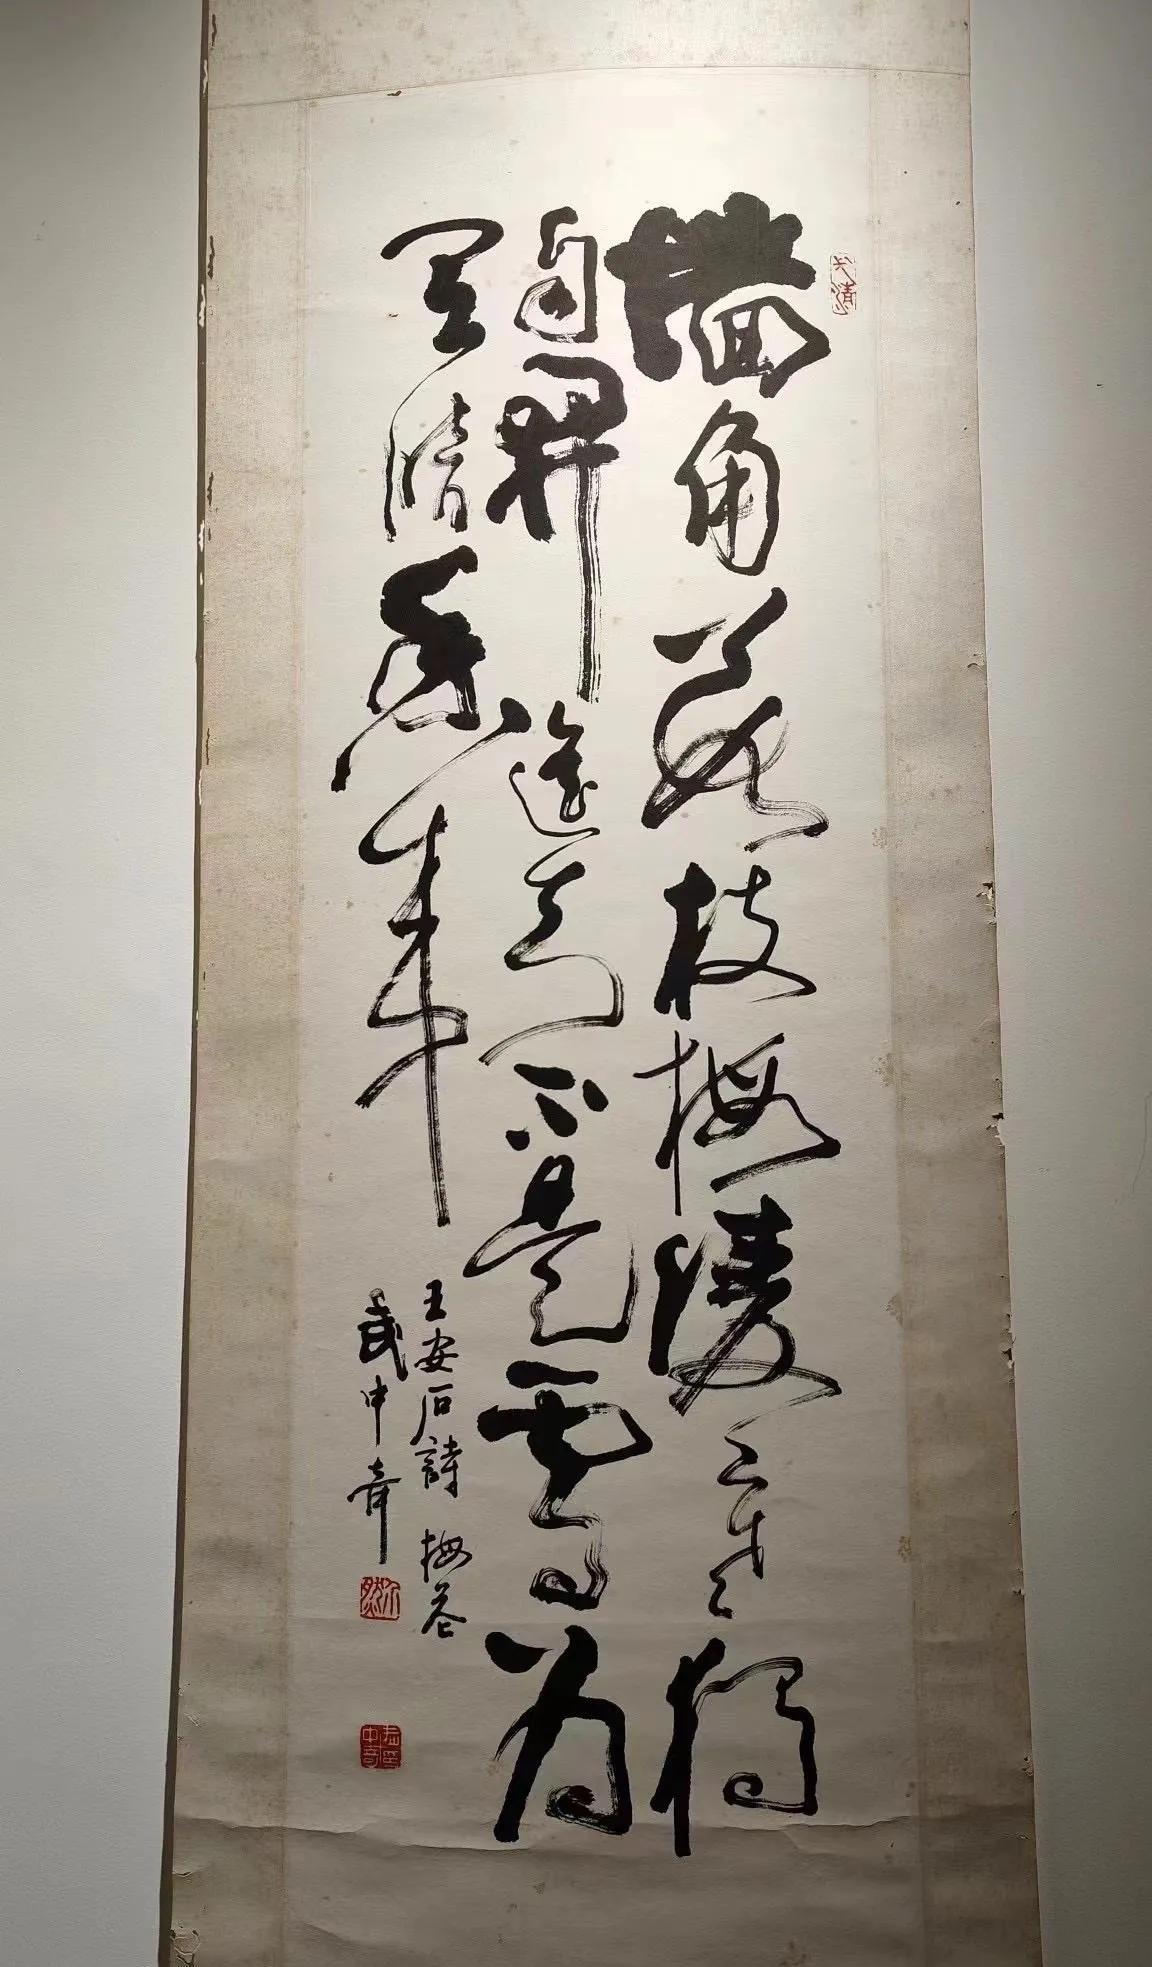 墙角数枝梅凌寒独
自開遥知不是雪为
有暗香来
王安石詩 梅花
武中奇